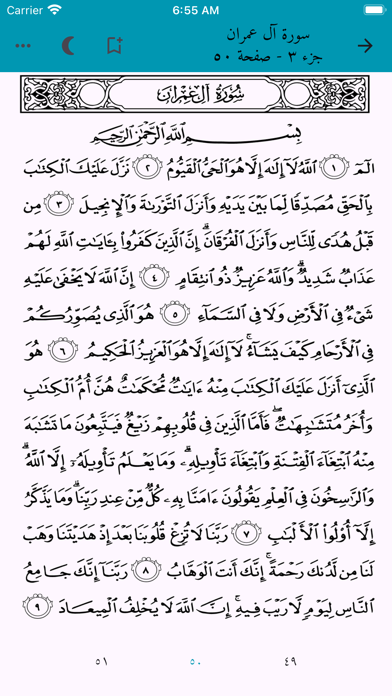 Carrier 6:55 AM
سورة آل عمران
جزء ٣ - صفحة ٥٠
سُورَةُ آلِ عِمْرَان
بِسْمِ اللَّهِ الرَّحْمَٰنِ الرَّحِيمِ
الٓمٓ ١ ٱللَّهُ لَآ إِلَٰهَ إِلَّا هُوَ ٱلْحَىُّ ٱلْقَيُّومُ ٢ نَزَّلَ عَلَيْكَ ٱلْكِتَٰبَ
بِٱلْحَقِّ مُصَدِّقًا لِّمَا بَيْنَ يَدَيْهِ وَأَنزَلَ ٱلتَّوْرَىٰةَ وَٱلْإِنجِيلَ ٣ مِن
قَبْلُ هُدًى لِّلنَّاسِ وَأَنزَلَ ٱلْفُرْقَانَ ۗ إِنَّ ٱلَّذِينَ كَفَرُوا۟ بِـَٔايَٰتِ ٱللَّهِ لَهُمْ
عَذَابٌ شَدِيدٌ ۗ وَٱللَّهُ عَزِيزٌ ذُو ٱنتِقَامٍ ٤ إِنَّ ٱللَّهَ لَا يَخْفَىٰ عَلَيْهِ
شَىْءٌ فِى ٱلْأَرْضِ وَلَا فِى ٱلسَّمَآءِ ٥ هُوَ ٱلَّذِى يُصَوِّرُكُمْ
فِى ٱلْأَرْحَامِ كَيْفَ يَشَآءُ ۚ لَآ إِلَٰهَ إِلَّا هُوَ ٱلْعَزِيزُ ٱلْحَكِيمُ ٦ هُوَ
ٱلَّذِىٓ أَنزَلَ عَلَيْكَ ٱلْكِتَٰبَ مِنْهُ ءَايَٰتٌ مُّحْكَمَٰتٌ هُنَّ أُمُّ ٱلْكِتَٰبِ
وَأُخَرُ مُتَشَٰبِهَٰتٌ ۖ فَأَمَّا ٱلَّذِينَ فِى قُلُوبِهِمْ زَيْغٌ فَيَتَّبِعُونَ مَا تَشَٰبَهَ
مِنْهُ ٱبْتِغَآءَ ٱلْفِتْنَةِ وَٱبْتِغَآءَ تَأْوِيلِهِۦ ۗ وَمَا يَعْلَمُ تَأْوِيلَهُۥٓ إِلَّا ٱللَّهُ ۗ
وَٱلرَّٰسِخُونَ فِى ٱلْعِلْمِ يَقُولُونَ ءَامَنَّا بِهِۦ كُلٌّ مِّنْ عِندِ رَبِّنَا ۗ وَمَا يَذَّكَّرُ
إِلَّآ أُو۟لُوا۟ ٱلْأَلْبَٰبِ ٧ رَبَّنَا لَا تُزِغْ قُلُوبَنَا بَعْدَ إِذْ هَدَيْتَنَا وَهَبْ
لَنَا مِن لَّدُنكَ رَحْمَةً ۚ إِنَّكَ أَنتَ ٱلْوَهَّابُ ٨ رَبَّنَآ إِنَّكَ جَامِعُ
ٱلنَّاسِ لِيَوْمٍ لَّا رَيْبَ فِيهِ ۚ إِنَّ ٱللَّهَ لَا يُخْلِفُ ٱلْمِيعَادَ ٩
٤٩ ٥٠ ٥١